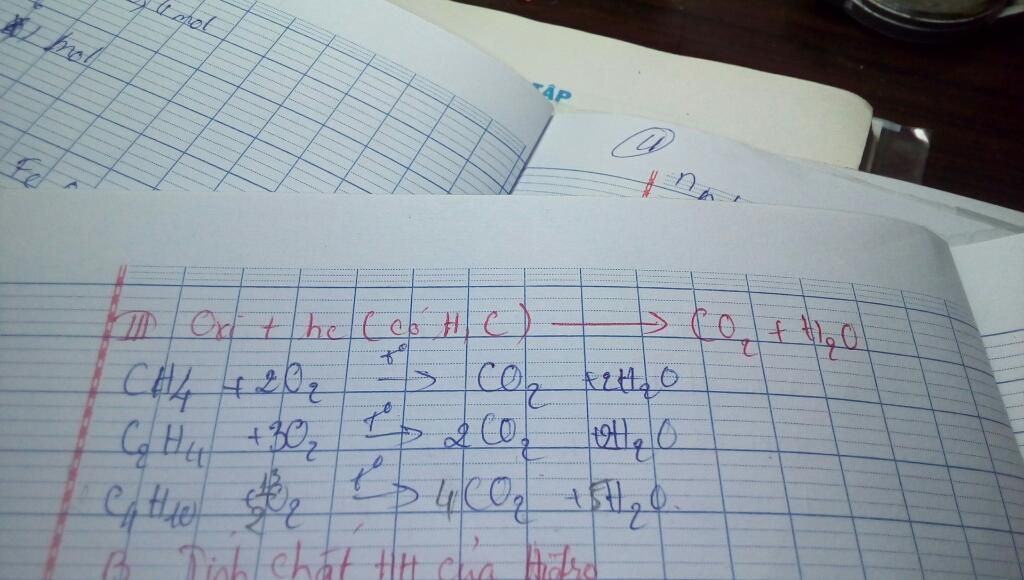 4 mol
1 mol
Fe
TẬP
4
n
III Oxi + hc (có H, C) ⟶ CO₂ + H₂O
CH₄ + 2O₂ t° → CO₂ + 2H₂O
C₂H₄ + 3O₂ t° → 2CO₂ + 2H₂O
C₄H₁₀ + 13/2 O₂ t° → 4CO₂ + 5H₂O.
B Tính chất HH của Hiđro